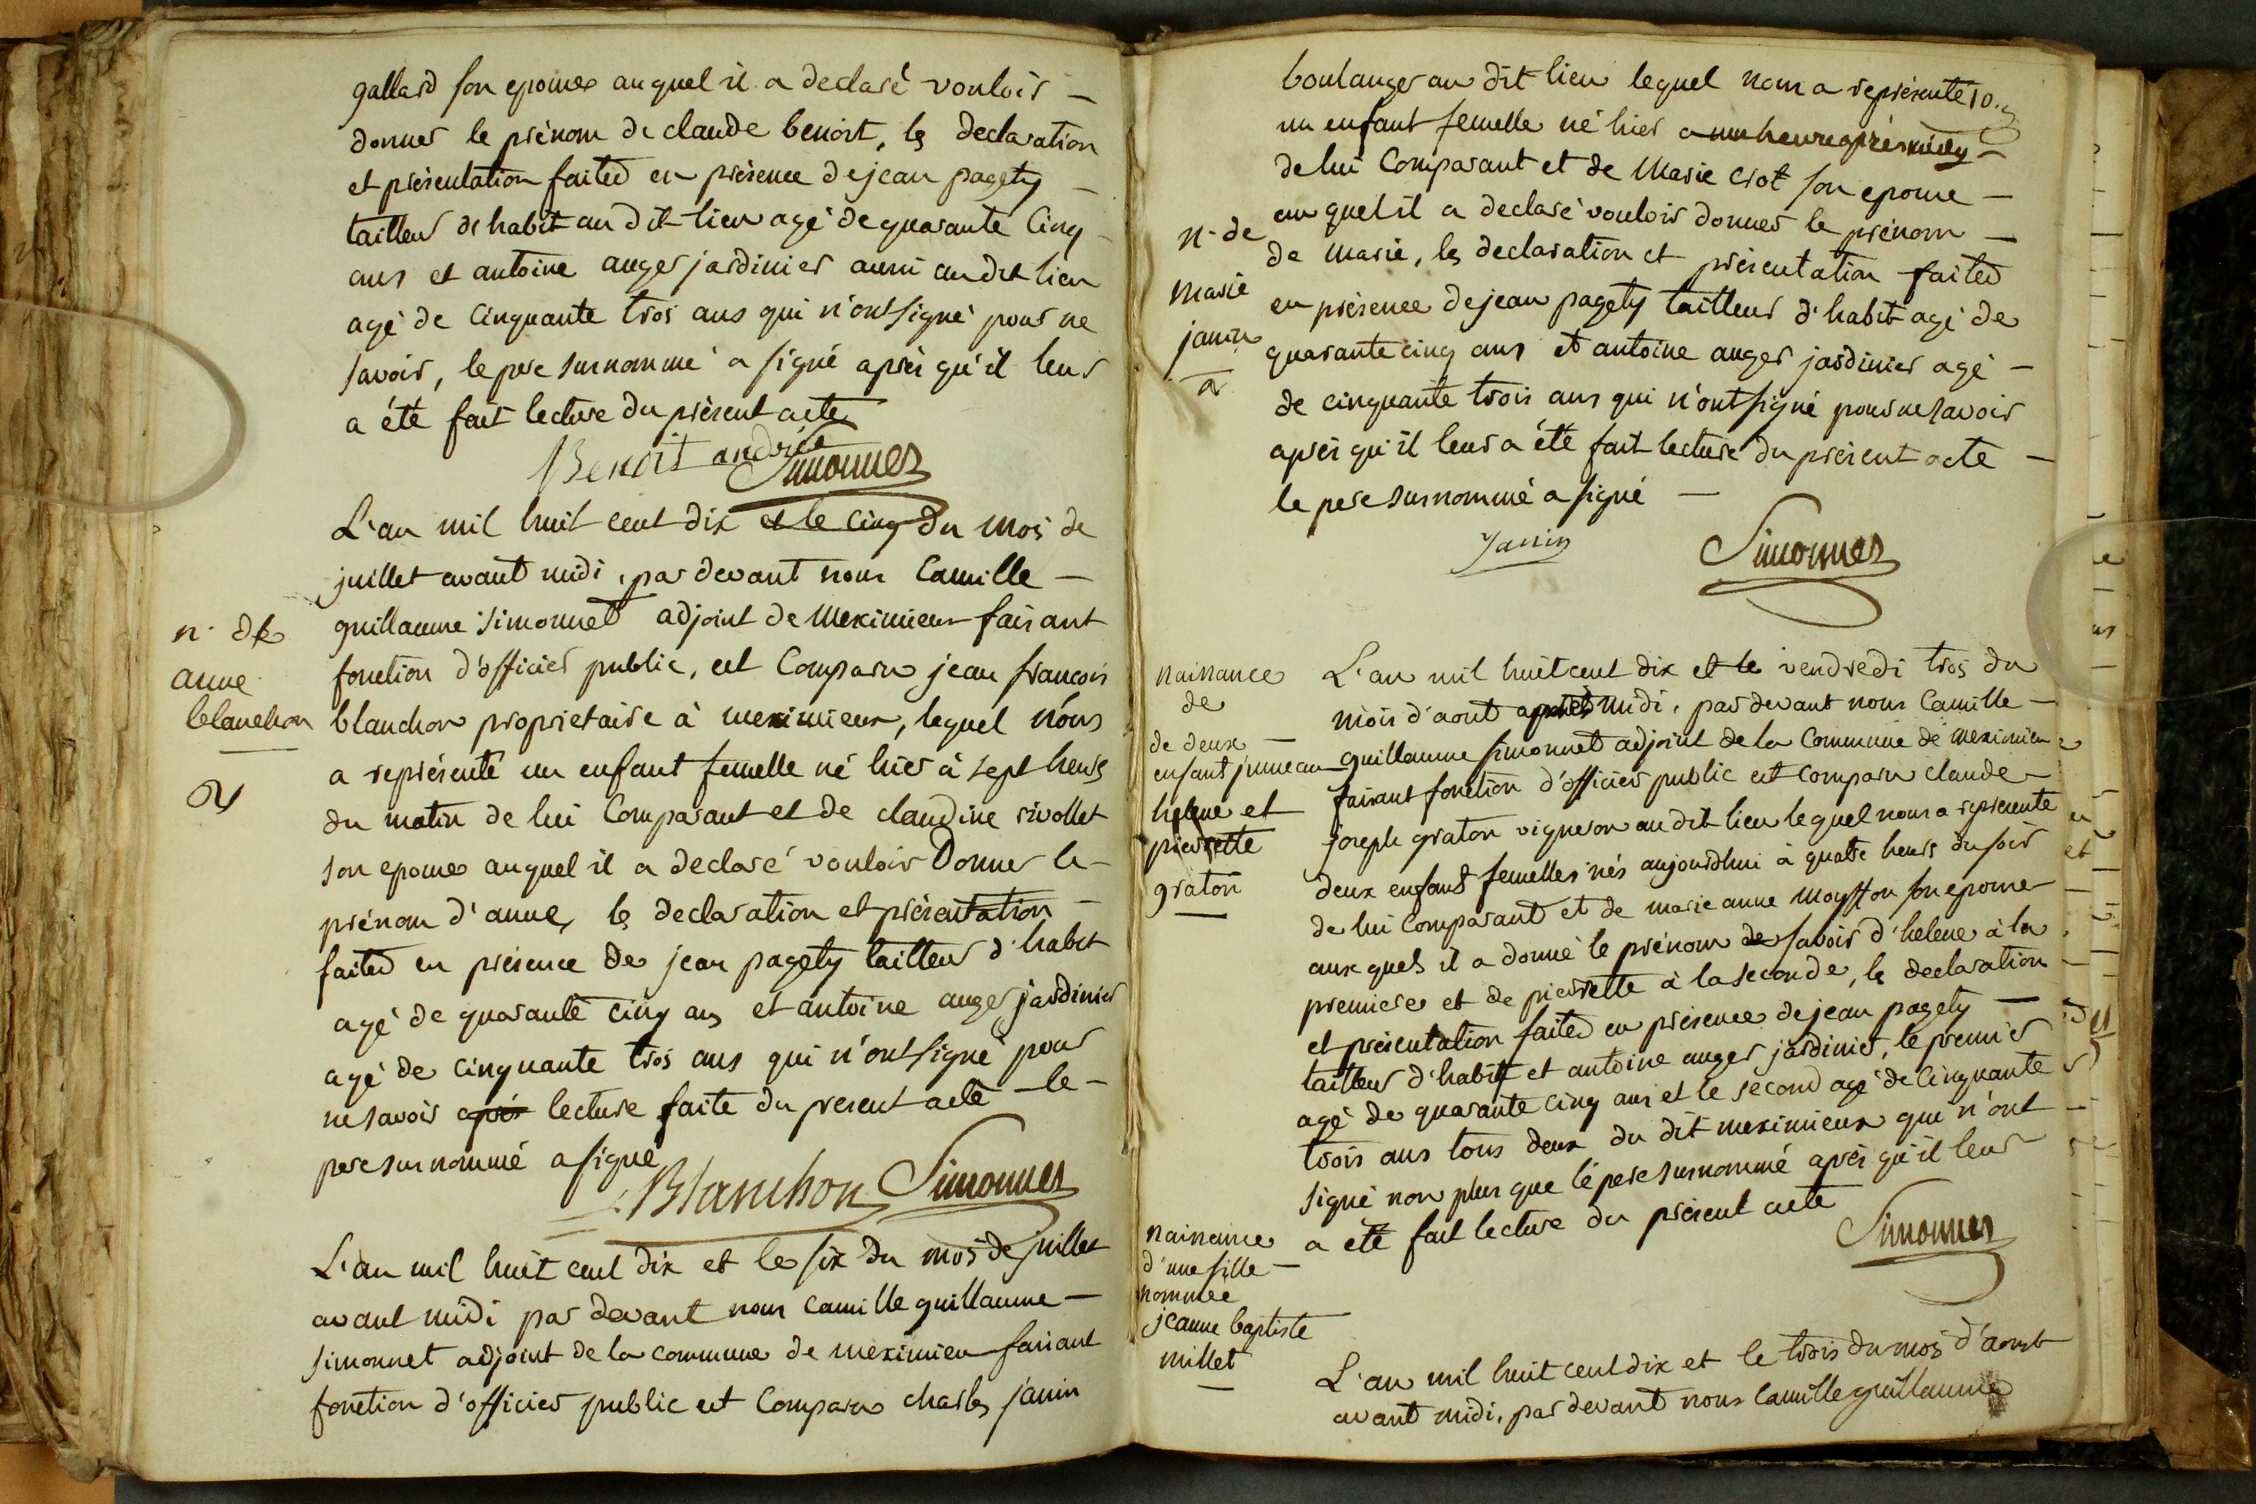 gallard son epouse auquel il a declaré vouloir —
donner le prénom de claude benoit, les declaration
et présentation faites en présence de jean pagety —
tailleur d'habit au dit lieu agé de quarante cinq —
ans et antoine auger jardinier aussi au dit lieu
agé de cinquante trois ans qui n'ont signé pour ne
savoir, le pere surnommé a signé après qu'il leur
a été fait lecture du présent acte
Benoit andré
Simonnet
L'an mil huit cent dix et le cinq du mois de
juillet avant midi, par devant nous Camille —
guillaume simonnet adjoint de Meximieux faisant
fonction d'officier public, est Comparu jean françois
blanchon proprietaire à meximieux, lequel nous
a représenté un enfant femelle né hier à sept heures
du matin de lui Comparant et de claudine rivollet
son epouse auquel il a declaré vouloir Donner le —
prénom d'anne, les declaration et présentation —
faites en présence de jean pagety tailleur d'habit
agé de quarante cinq ans et antoine auger jardinier
agé de cinquante trois ans qui n'ont signé pour
ne savoir après lecture faite du present acte — le —
pere surnommé a signé
Blanchon Simonnet
L'an mil huit cent dix et le six du mois de juillet
avant midi par devant nous camille guillaume —
simonnet adjoint de la commune de meximieu faisant
fonction d'officier public est Comparu charles janin
n. de
anne
blanchon
boulanger au dit lieu lequel nous a représenté
un enfant femelle né hier a une heure après midy —
de lui Comparant et de Marie crot son epouse —
auquel il a declaré vouloir donner le prénom —
de marie, les declaration et présentation faites
en présence de jean pagety tailleur d'habit agé de
quarante cinq ans et antoine auger jardinier agé —
de cinquante trois ans qui n'ont signé pour ne savoir
après qu'il leur a été fait lecture du présent acte —
le pere surnommé a signé —
Janin
Simonnet
n. de
marie
janin
L'an mil huit cent dix et le vendredi trois du
mois d'aout après midi, par devant nous Camille —
guillaume simonnet adjoint de la Commune de meximieu
faisant fonction d'officier public est comparu claude —
joseph graton vigneron au dit lieu lequel nous a représenté
deux enfants femelles nés aujourdhui à quatre heures du soir
de lui Comparant et de marie anne moysson son epouse
aux quels il a donné le prénom de savoir d'helene à la
premiere et de pierrette à la seconde, les declaration
et présentation faites en présence de jean pagety —
tailleur d'habit et antoine auger jardinier, le premier
agé de quarante cinq ans et le second agé de cinquante
trois ans tous deux du dit meximieux qui n'ont
signé non plus que le pere surnommé après qu'il leur
a été fait lecture du présent acte
Simonnet
naissance
de
de deux —
enfant jumeau
helene et
pierrette
graton
naissance
d'une fille —
nommée
jeanne baptiste
millet
L'an mil huit cent dix et le trois du mois d'aoust
avant midi, par devant nous Camille guillaume